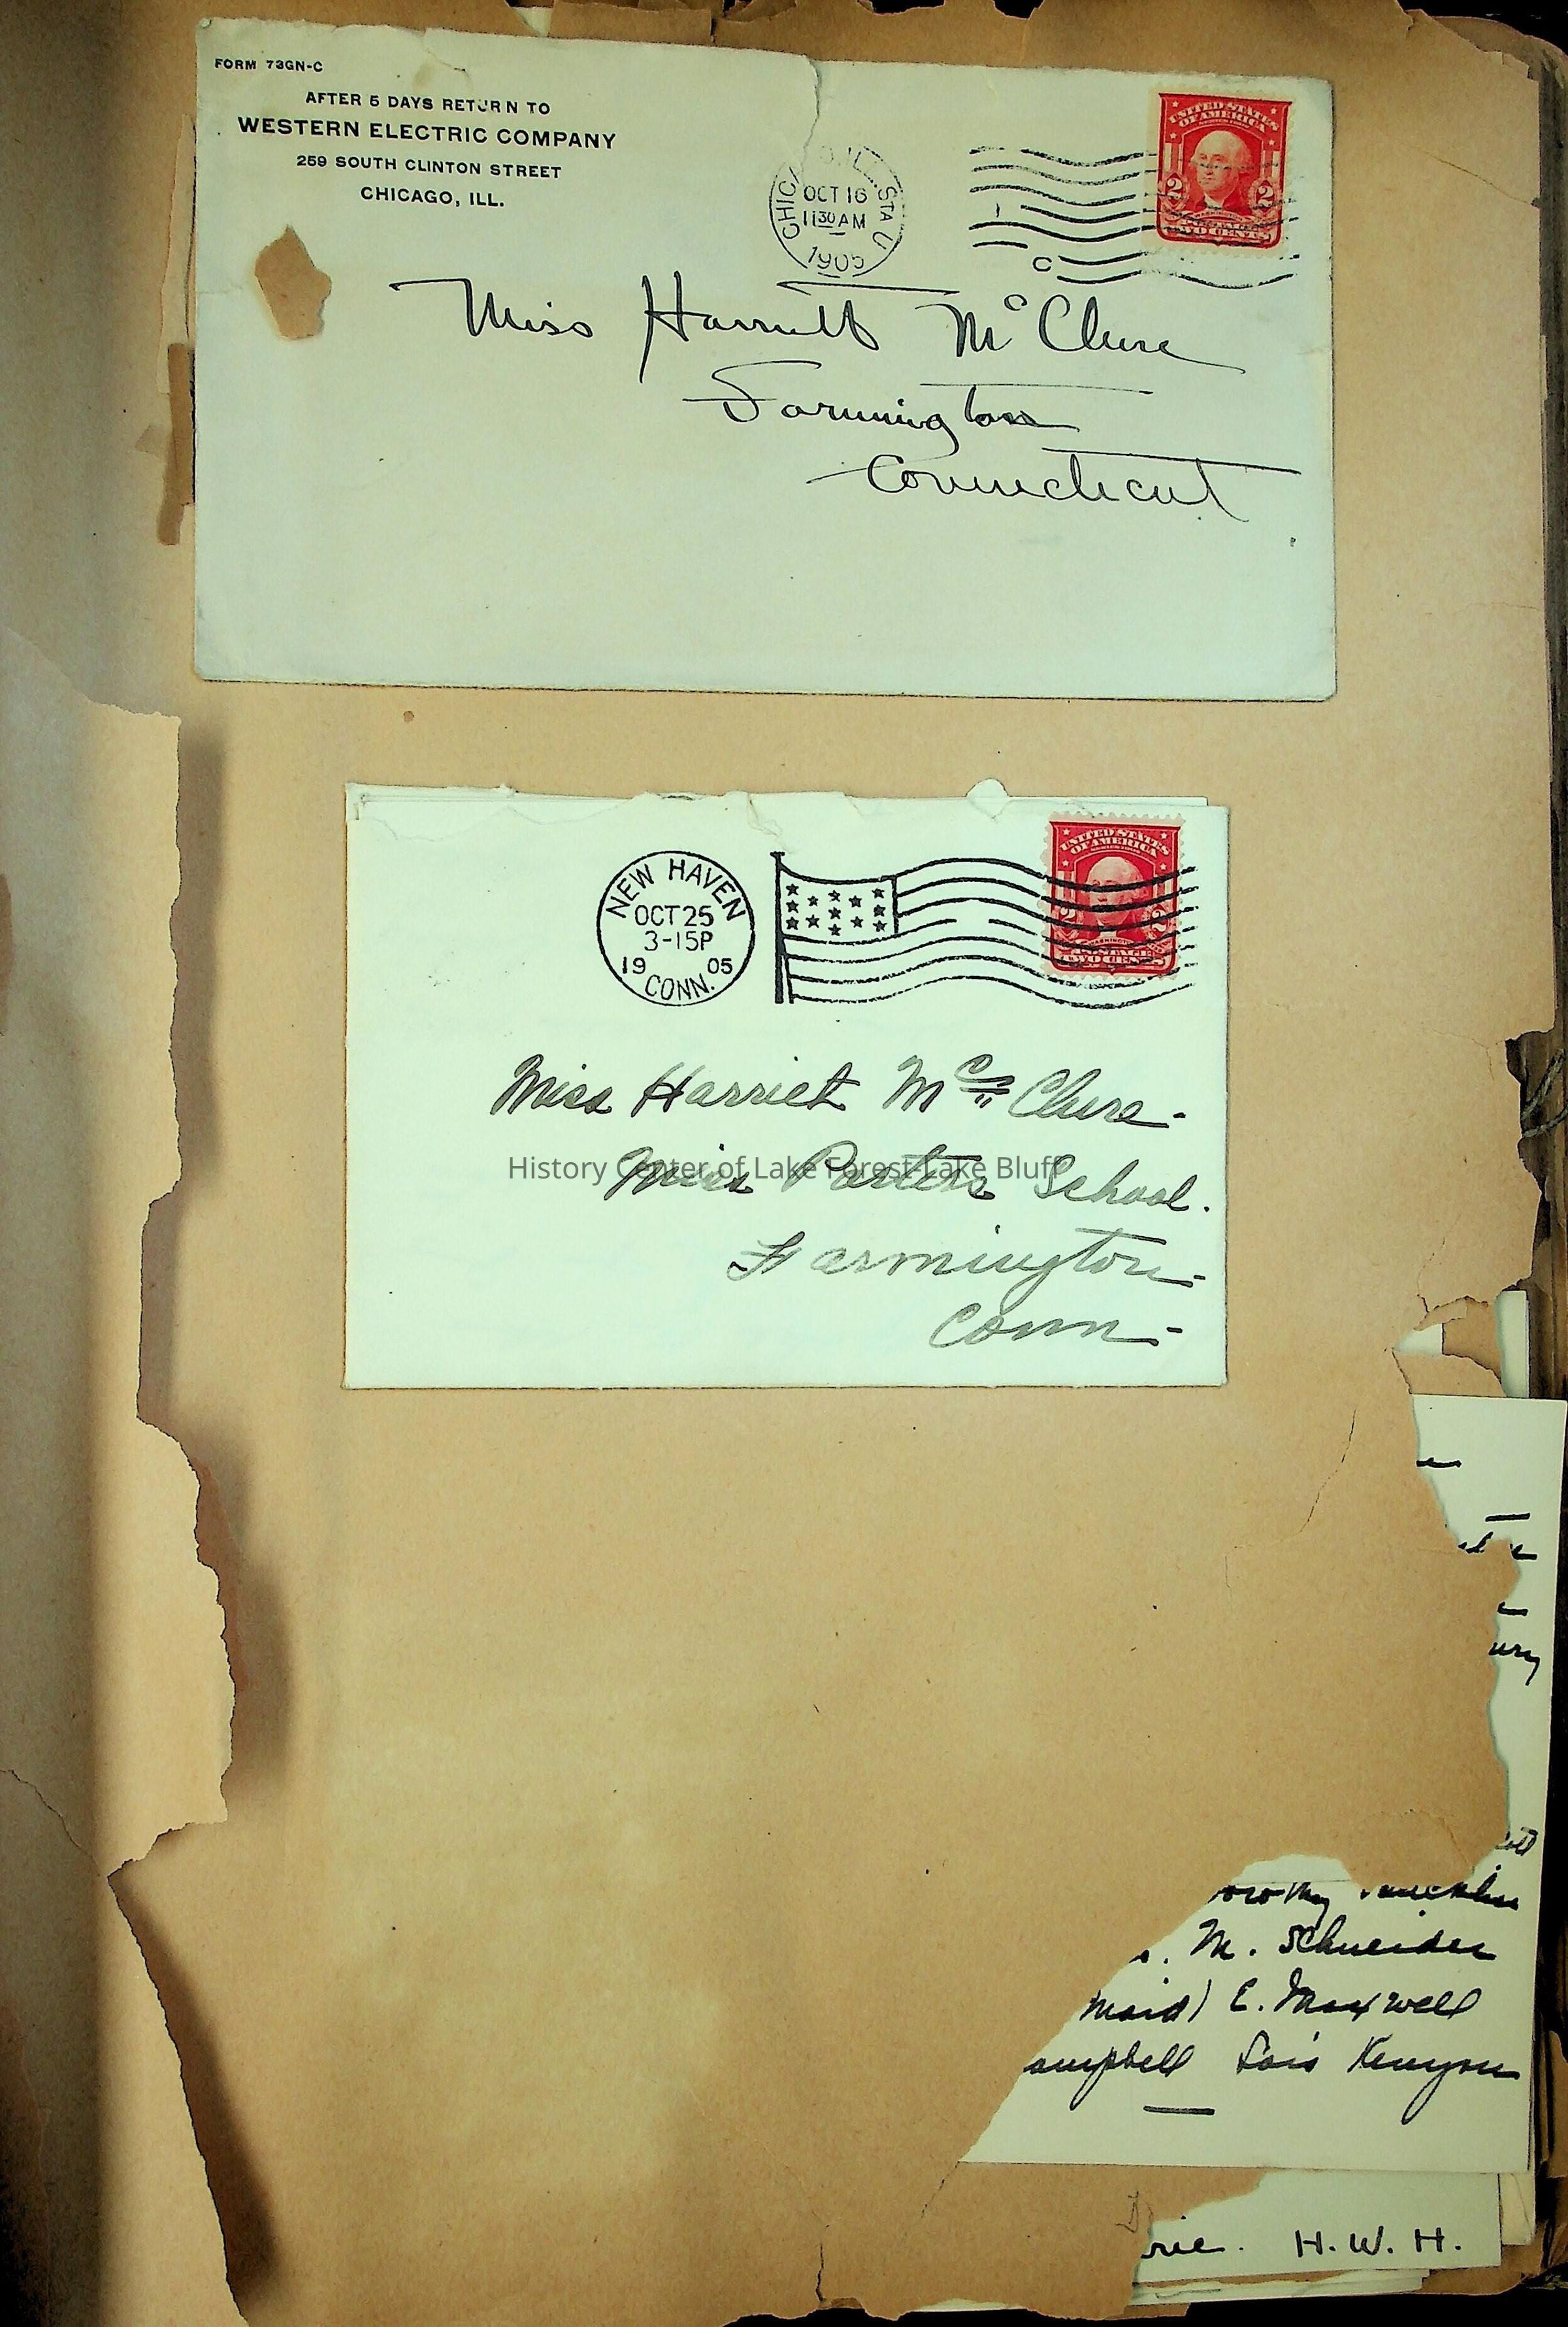 FORM 73GN-C
AFTER 5 DAYS RETURN TO
WESTERN ELECTRIC COMPANY
259 SOUTH CLINTON STREET
CHICAGO, ILL.
OCT 16
11 30 AM
1905
STA U
UNITED STATES
OF AMERICA
2 2
TWO CENTS
C
Miss Harriett McClure
Farmington
Connecticut
NEW HAVEN
OCT 25
3-15P
19 05
CONN.
UNITED STATES
OF AMERICA
2 2
TWO CENTS
Miss Harriet McClure-
Miss Porters School.
Farmington-
Conn-
History Center of Lake Forest-Lake Bluff
M. Schneider
maid) E. Maxwell
ampbell Lois Kenyon
rie. H. W. H.